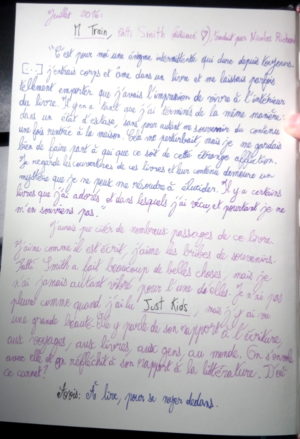 Juillet 2016:
M Train, Patti Smith (édition ♡), traduit par Nicolas Richard
"C'est pour moi une énigme intermittente qui dure depuis toujours.
[...] j'entrais corps et âme dans un livre et me laissais parfois
tellement emporter que j'avais l'impression de vivre à l'intérieur
du livre. Il y en a tant que j'ai terminés de la même manière:
dans un état d'extase, sans pour autant me souvenir du contenu
une fois rentrée à la maison. Cela me perturbait, mais je me gardais
bien de faire part à qui que ce soit de cette étrange affliction.
Je regarde les couvertures de ces livres et leur contenu demeure un
mystère que je ne peux me résoudre à élucider. Il y a certains
livres que j'ai adorés et dans lesquels j'ai vécu, et pourtant je ne
m'en souviens pas."
J'aurais pu citer de nombreux passages de ce livre.
J'aime comme il est écrit, j'aime les bribes de souvenirs.
Patti Smith a fait beaucoup de belles choses, mais je
n'ai jamais autant vibré pour l'une d'elles. Je n'ai pas
pleuré comme quand j'ai lu Just Kids, mais j'y ai vu
une grande beauté. Elle y parle de son rapport à l'écriture,
aux voyages, aux livres, aux gens, au monde. On s'envole
avec elle et on réfléchit à son rapport à la littérature. D'où
ce carnet?
Avis: À lire, pour se noyer dedans.